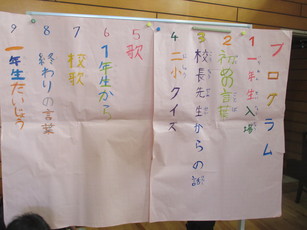 プログラム
1 一年生入場
2 初めの言葉
3 校長先生からの話
4 二小クイズ
5 歌
6 1年生から
7 校歌
8 終わりの言葉
9 一年生たいじょう